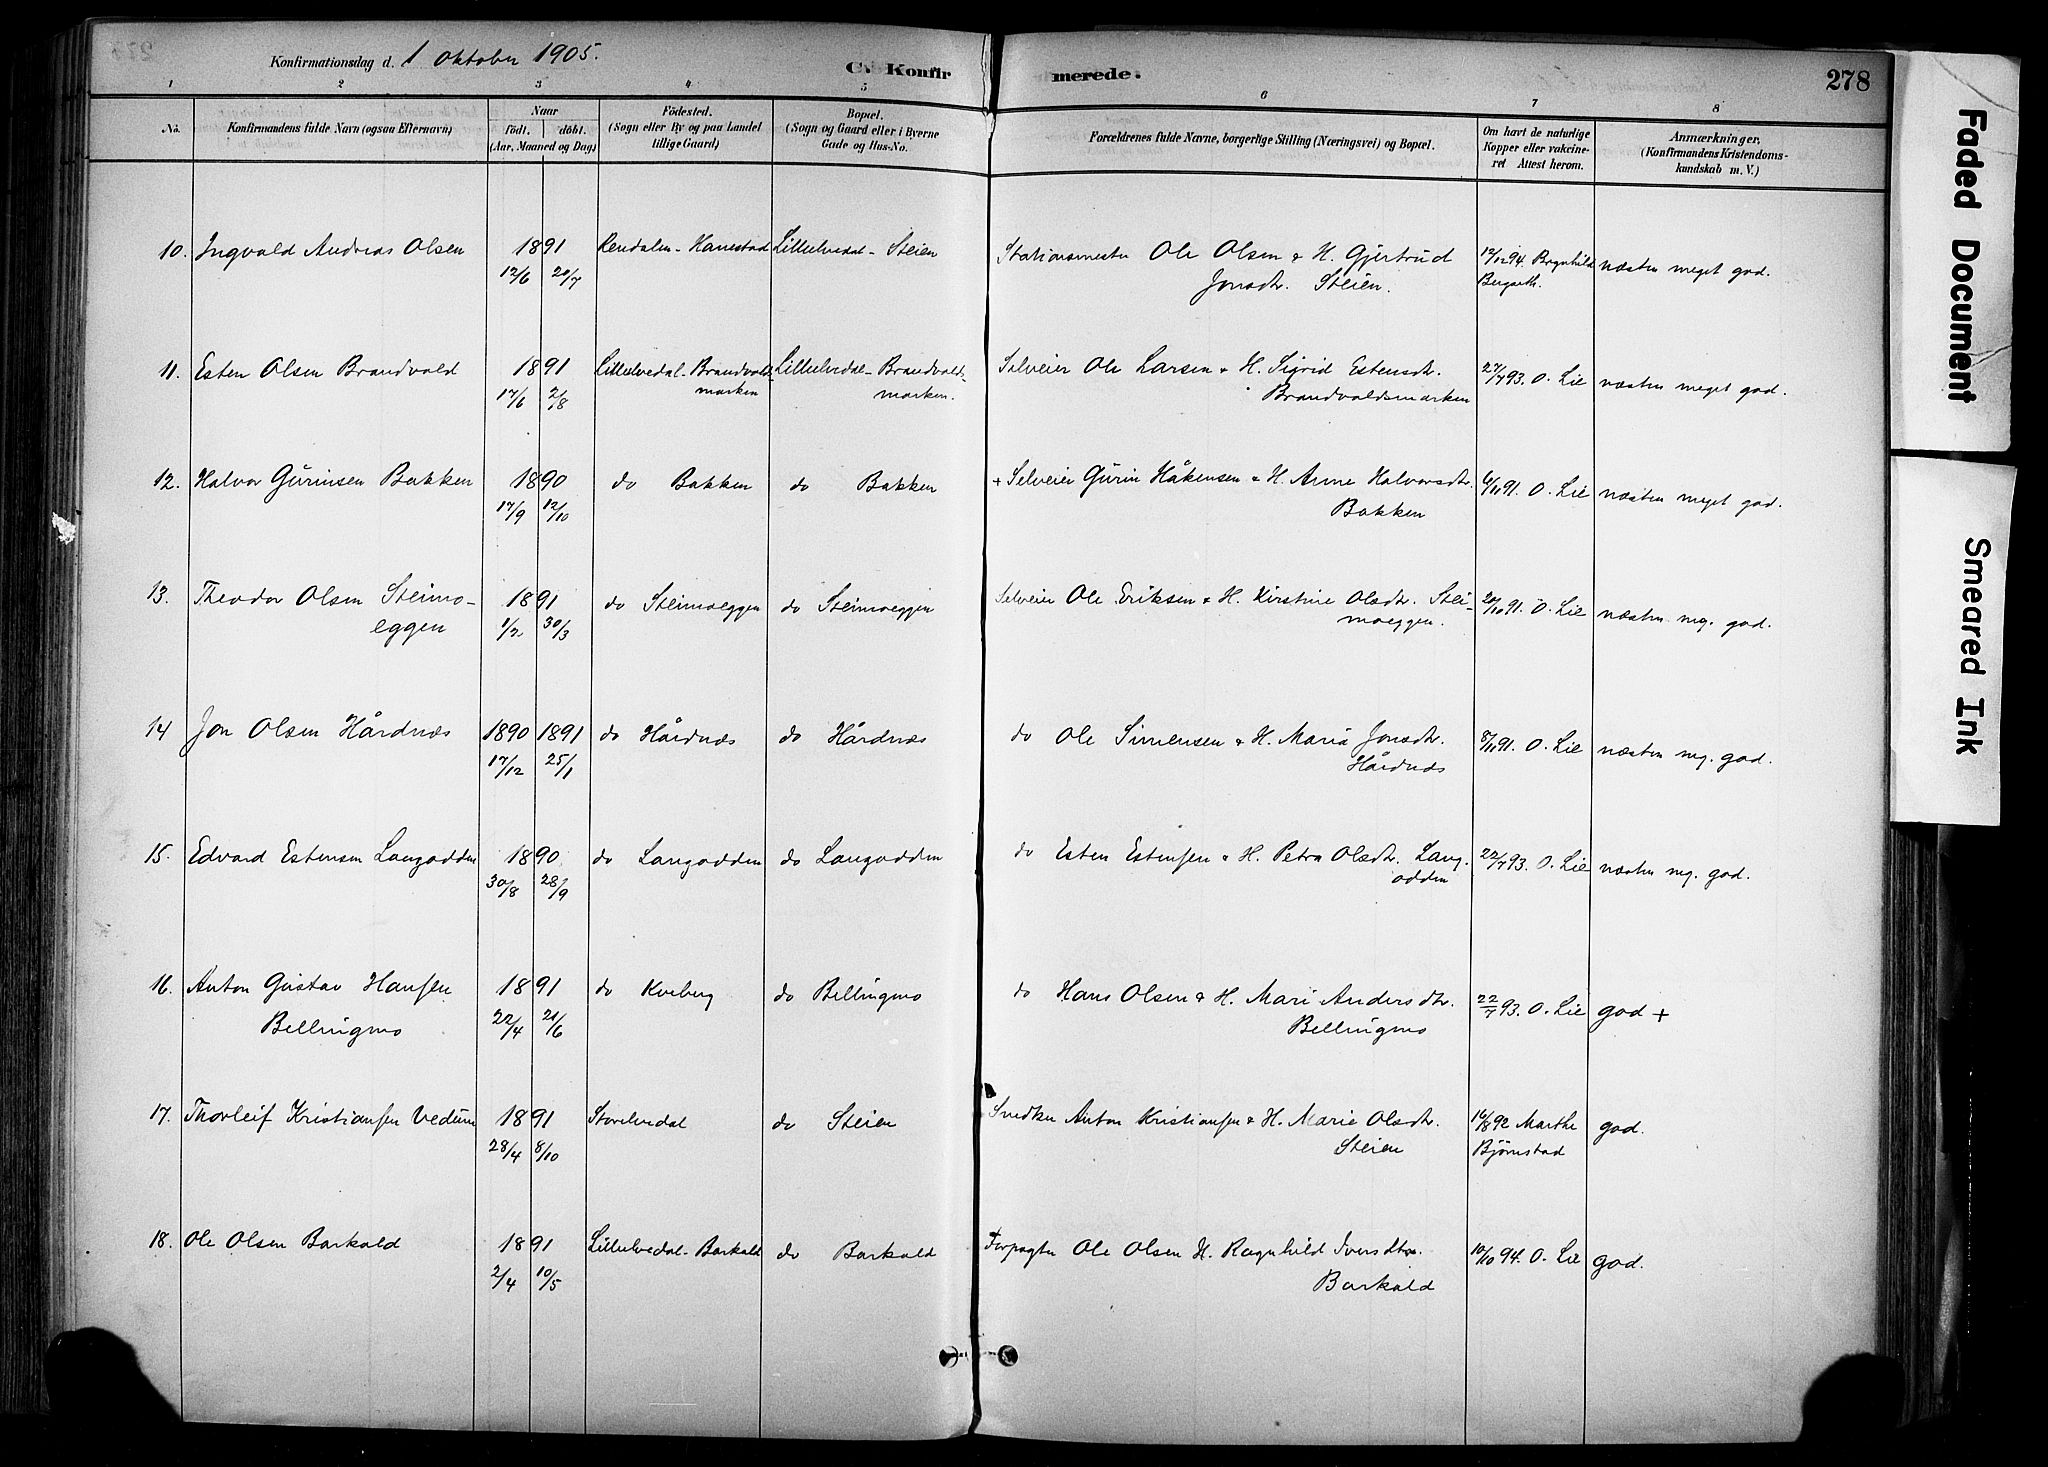 Konfirmationsdag d. 1 Oktober 1905.
C. Konfirmerede.
278
1 2 3 4 5 6 7 8
No.
Konfirmandens fulde Navn (ogsaa Efternavn)
Naar
födt. döbt.
(Aar, Maaned og Dag)
Födested.
(Sogn eller By og paa Landet
tillige Gaard)
Bopæl.
(Sogn og Gaard eller i Byerne
Gade og Hus-No.
Forældrenes fulde Navne, borgerlige Stilling (Næringsvei) og Bopæl.
Om havt de naturlige
Kopper eller vakcine-
ret Attest herom.
Anmærkninger,
(Konfirmandens Kristendoms-
kundskab m. V.)
10. Ingvald Andreas Olsen 1891 Rendalen - Hanestad Lilleelvedal - Steien Stationsmester Ole Olsen & H. Gjertrud 12/12 94. Ragnhild næsten meget god.
12/6 20/7 Jonsdtr. Steien. Bergseth.
11. Esten Olsen Brandvold 1891 Lilleelvedal - Brandvold- Lilleelvedal - Brandvold- Selveier Ole Larsen & H. Sigrid Estensdtr. 27/7 93. O. Lie næsten meget god.
17/6 2/8 marken marken. Brandvoldsmarken
12. Halvor Gürinsen Bakken 1890 do Bakken do Bakken + Selveier Gürin Håkensen & H. Anne Halvorsdtr. 6/11 91. O. Lie næsten meget god.
17/9 12/10 Bakken
13. Theodor Olsen Steimo- 1891 do Steimoeggen do Steimoeggen Selveier Ole Eriksen & H. Kirstine Olsdtr. Stei- 20/10 91. O. Lie næsten meg. god.
eggen 1/2 30/3 moeggen.
14 Jon Olsen Hårdnæs 1890 1891 do Hårdnæs do Hårdnæs do Ole Simensen & H. Maria Jonsdtr. 8/11 91. O. Lie næsten meg. god.
17/12 25/1 Hårdnæs
15. Edvard Estensen Langodden 1890 do Langodden do Langodden do Esten Estensen & H. Petra Olsdtr. Lang- 22/7 93. O. Lie næsten meg. god.
30/8 28/9 odden
16. Anton Gustav Hansen 1891 do Kveberg do Bellingmo do Hans Olsen & H. Mari Andersdtr. 22/7 93. O. Lie god +
Bellingmo 22/4 21/6 Bellingmo
17. Thorleif Kristiansen Vedum 1891 Storelvedal do Steien Snedker Anton Kristiansen & H. Marie Olsdtr. 16/8 92 Marthe god.
28/4 8/10 Steien Bjørnstad
18. Ole Olsen Barkald 1891 Lilleelvedal - Barkald do Barkald Forpagter Ole Olsen H. Ragnhild Iversdtr. 10/10 94. O. Lie god.
2/4 10/5 Barkald
Faded Document
Smeared Ink